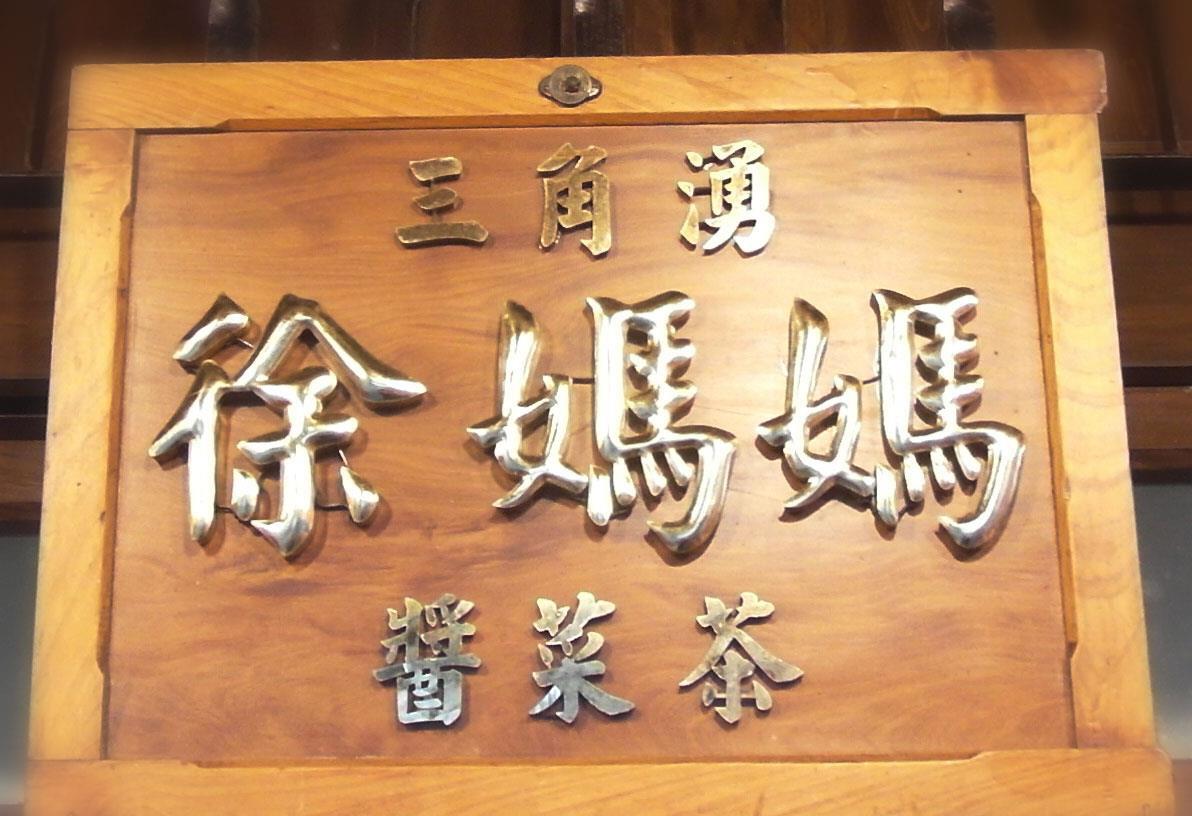 三角湧
徐媽媽
醬菜茶